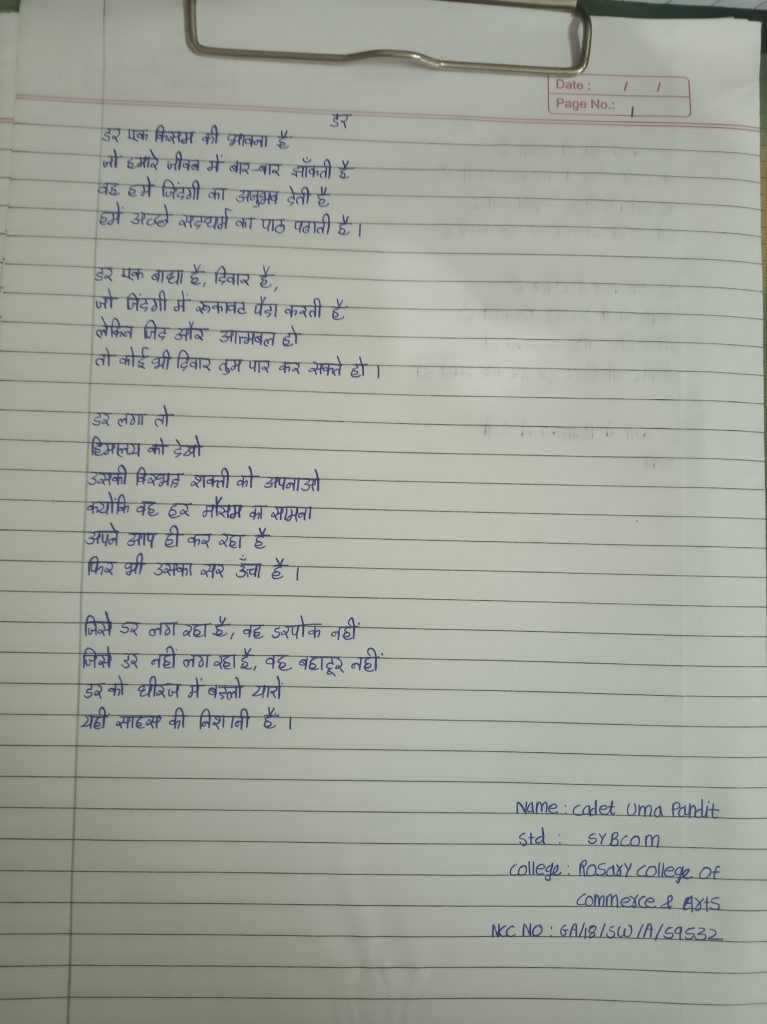 Date : / /
Page No.: 1
डर
डर एक किसम की भावना है
जो हमारे जीवन में बार-बार झाँकती है
वह हमें जिंदगी का अनुभव देती है
हमें अच्छे सदधर्म का पाठ पढाती है।
डर एक बाधा है, दिवार है,
जो जिंदगी में रुकावट पैदा करती है
लेकिन जिद और आत्मबल हो
तो कोई भी दिवार तुम पार कर सकते हो।
डर लगा तो
हिमालय को देखो
उसकी शक्ती को अपनाओ
क्योंकि वह हर मौसम का सामना
अपने आप ही कर रहा है
फिर भी उसका सर ऊँचा है।
जिसे डर लग रहा है, वह डरपोक नहीं
जिसे डर नहीं लग रहा है, वह बहादूर नहीं
डर को धीरज में बदलो यारों
यही साहस की निशानी है।
Name : Cadet Uma Pandit
Std : SYBCOM
College : Rosary College Of
Commerce & Arts
NCC NO : GA/18/SW/A/59532